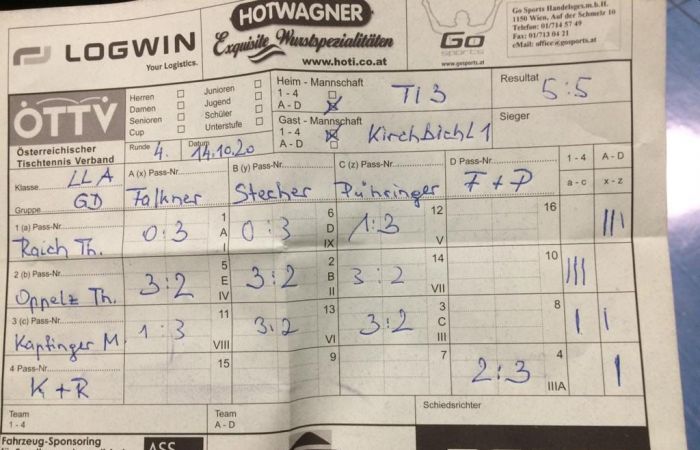 LOGWIN
Your Logistics.
HOTWAGNER
Exquisite Wurstspezialitäten
www.hoti.co.at
Go
sports
www.gosports.at
Go Sports Handelsges.m.b.H.
1150 Wien, Auf der Schmelz 10
Telefon: 01/714 57 49
Fax: 01/713 04 21
eMail: office@gosports.at
ÖTTV
Österreichischer
Tischtennis Verband
Herren
Damen
Senioren
Cup
Junioren
Jugend
Schüler
Unterstufe
Heim - Mannschaft
1 - 4
A - D
TI 3
Gast - Mannschaft
1 - 4
A - D
Kirchbichl 1
Resultat
5:5
Sieger
Runde 4.
Datum 14.10.20
Klasse LLA
Gruppe GD
A (x) Pass-Nr.
Falkner
B (y) Pass-Nr.
Stecher
C (z) Pass-Nr.
Pühringer
D Pass-Nr.
F + P
1 - 4
A - D
a - c
x - z
1 (a) Pass-Nr.
Raich Th.
0:3
1
A
I
0:3
6
D
IX
1:3
12
V
16
2 (b) Pass-Nr.
Oppelz Th.
3:2
5
E
IV
3:2
2
B
II
3:2
14
VII
10
3 (c) Pass-Nr.
Kapfinger M.
1:3
11
VIII
3:2
13
VI
3:2
3
C
III
8
4 Pass-Nr.
K + R
15
9
7
2:3
4
IIIA
Team
1 - 4
Team
A - D
Schiedsrichter
Fahrzeug-Sponsoring
ASS